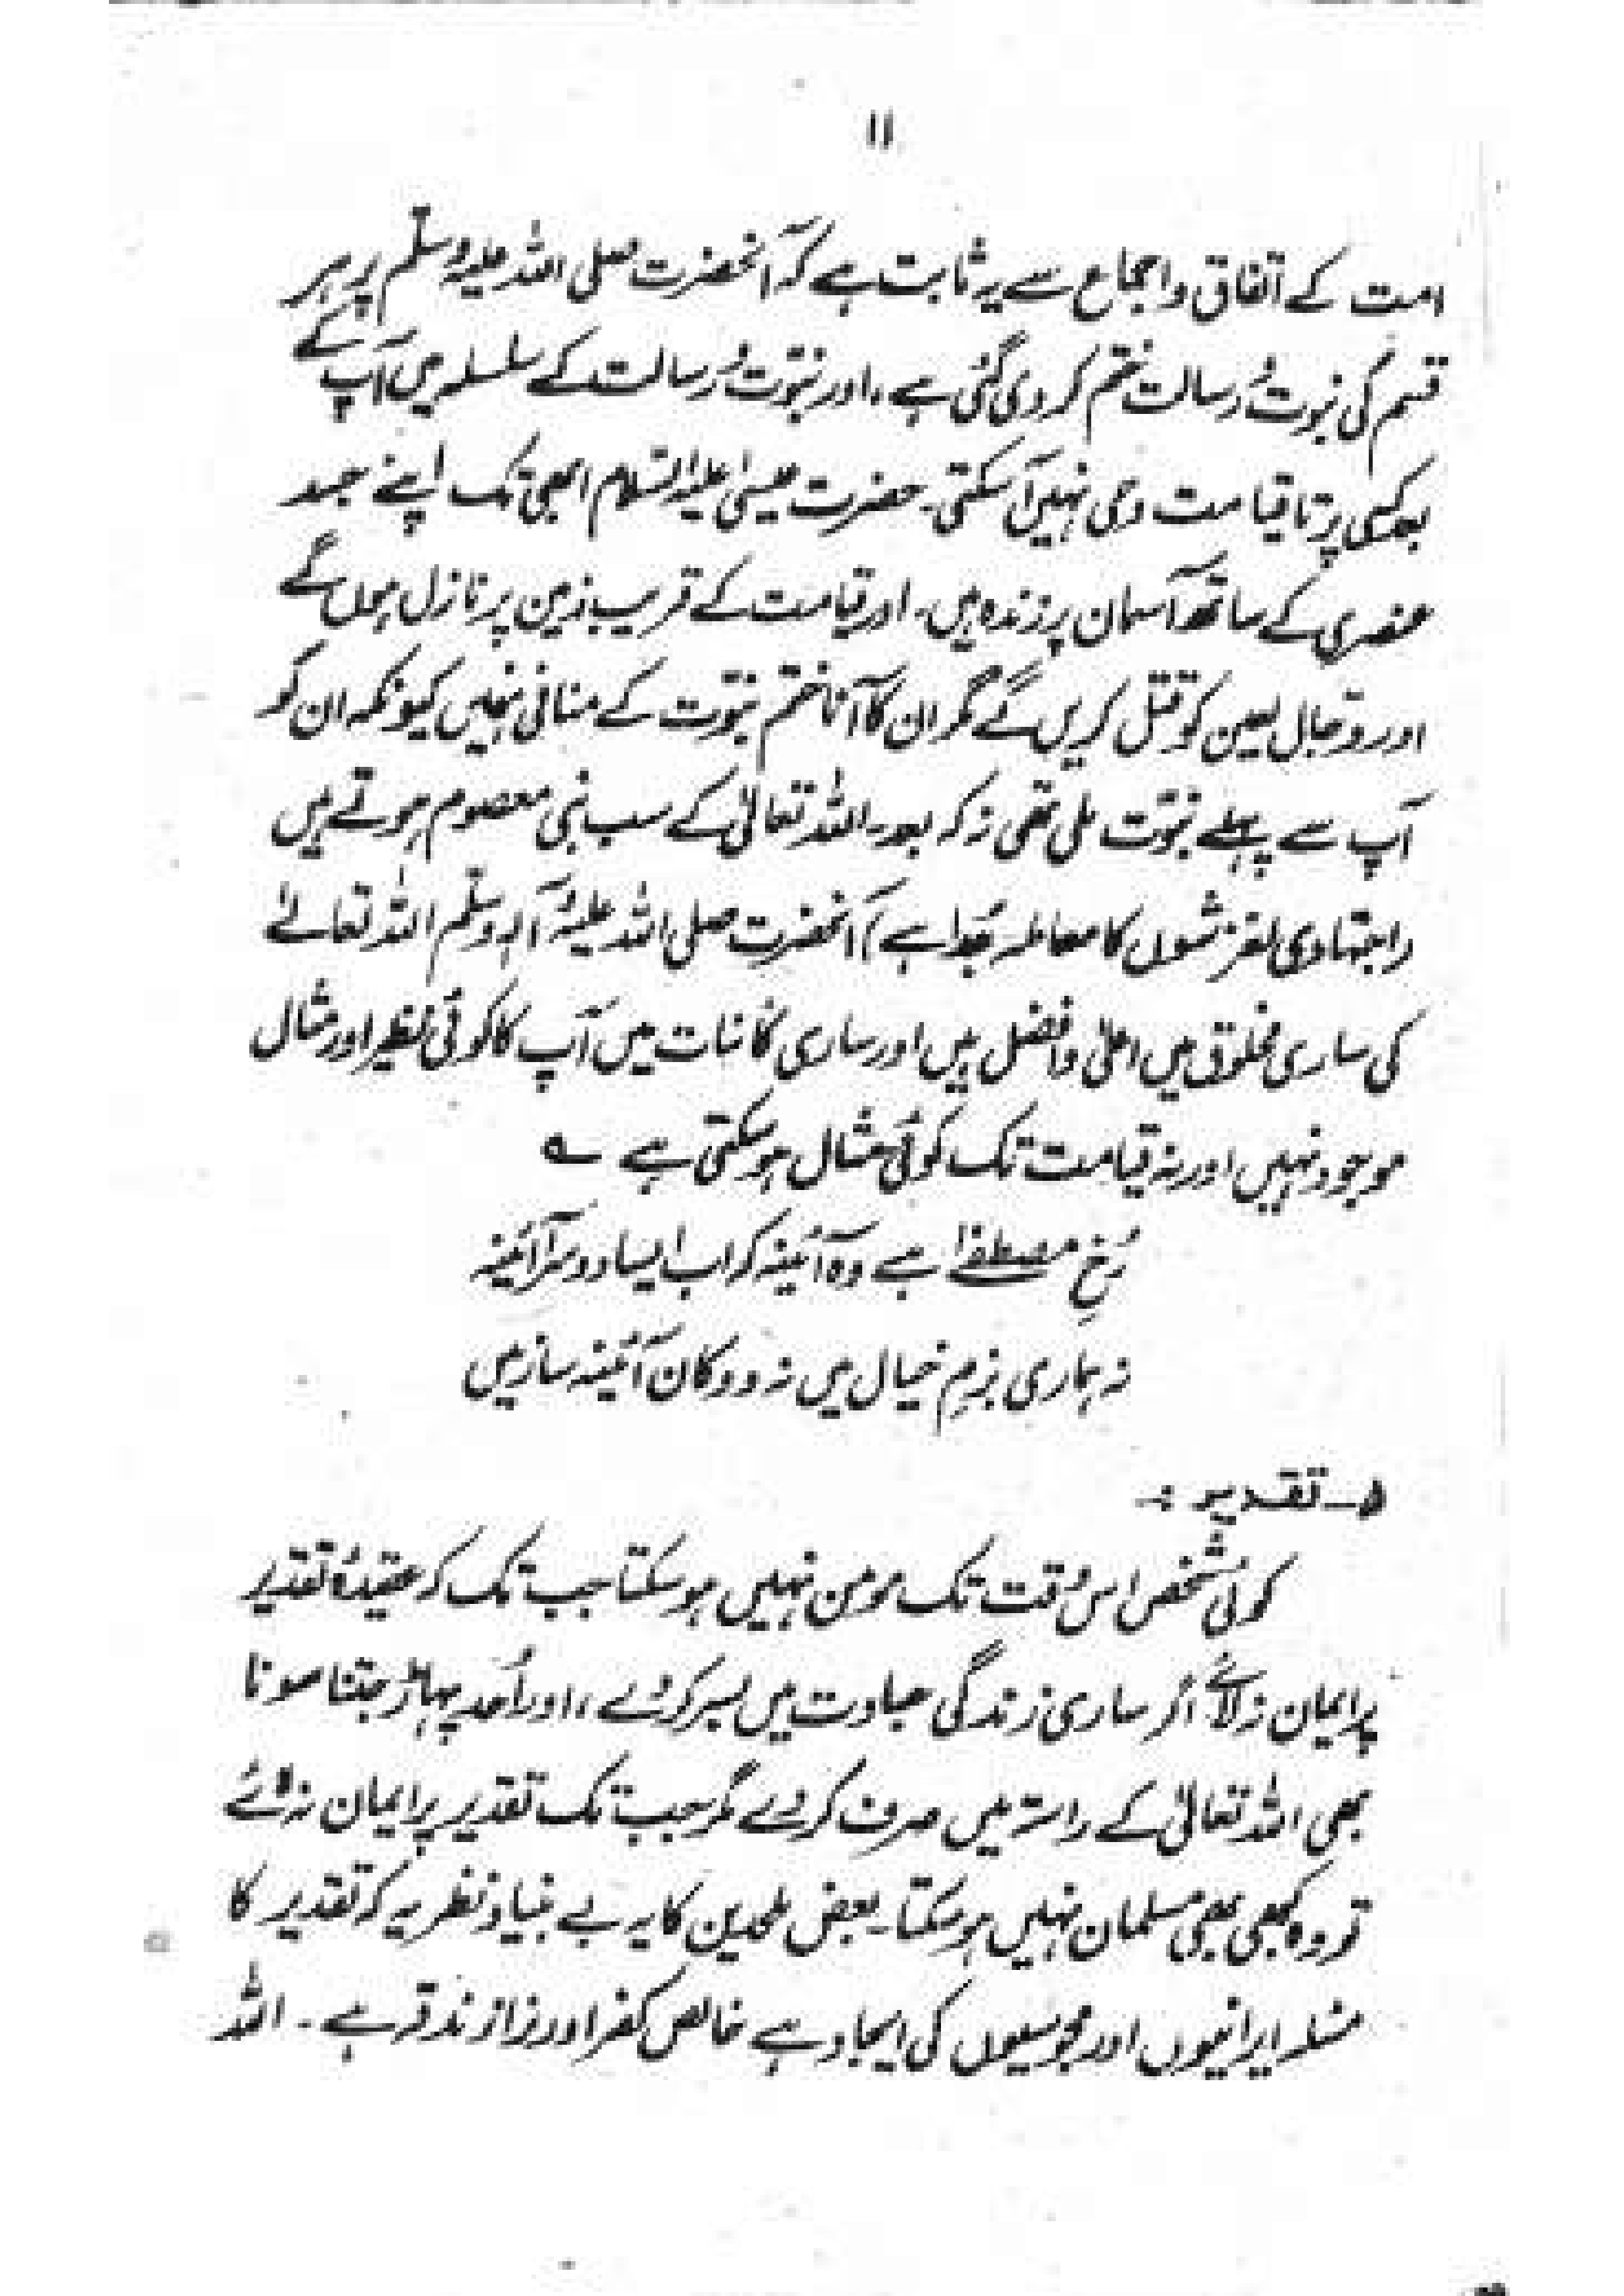 ۱۱
امت کے اتفاق و اجماع سے یہ ثابت ہے کہ آنحضرت صلی اللہ علیہ وسلّم پر ہر
قسم کی نبوت و رسالت ختم کر دی گئی ہے، اور نبوّت و رسالت کے سلسلہ میں آپ کے
بعد کسی پر تا قیامت وحی نہیں آ سکتی۔ حضرت عیسیٰ علیہ السّلام ابھی تک اپنے جسد
عنصری کے ساتھ آسمان پر زندہ ہیں۔ اور قیامت کے قریب زمین پر نازل ہوں گے
اور دجّال لعین کو قتل کریں گے مگر ان کا آنا ختم نبوّت کے منافی نہیں کیونکہ ان کو
آپ سے پہلے نبوّت ملی تھی نہ کہ بعد۔ اللہ تعالیٰ کے سب نبی معصوم ہوتے ہیں
(اجتہادی لغزشوں کا معاملہ جُدا ہے) آنحضرت صلی اللہ علیہ وآلہ وسلّم اللہ تعالےٰ
کی ساری مخلوق میں اعلیٰ و افضل ہیں اور ساری کائنات میں آپ کا کوئی نظیر اور مثال
موجود نہیں اور نہ قیامت تک کوئی مثال ہو سکتی ہے ؎
رُخِ مصطفےٰ ہے وہ آئینہ کہ اب ایسا دوسرا آئینہ
نہ ہماری بزمِ خیال میں نہ دوکان آئینہ ساز میں
۵۔ تقدیر :۔
کوئی شخص اس وقت تک مومن نہیں ہو سکتا جب تک کہ عقیدۂ تقدیر
پر ایمان نہ لائے اگر ساری زندگی عبادت میں بسر کر دے، اور اُحد پہاڑ جتنا سونا
بھی اللہ تعالیٰ کے راستہ میں صرف کر دے مگر جب تک تقدیر پر ایمان نہ لائے
تو وہ کبھی بھی مسلمان نہیں ہو سکتا۔ بعض ملحدین کا یہ بے بنیاد نظریہ کہ تقدیر کا
مسئلہ ایرانیوں اور مجوسیوں کی ایجاد ہے خالص کفر اور نرا زندقہ ہے۔ اللہ